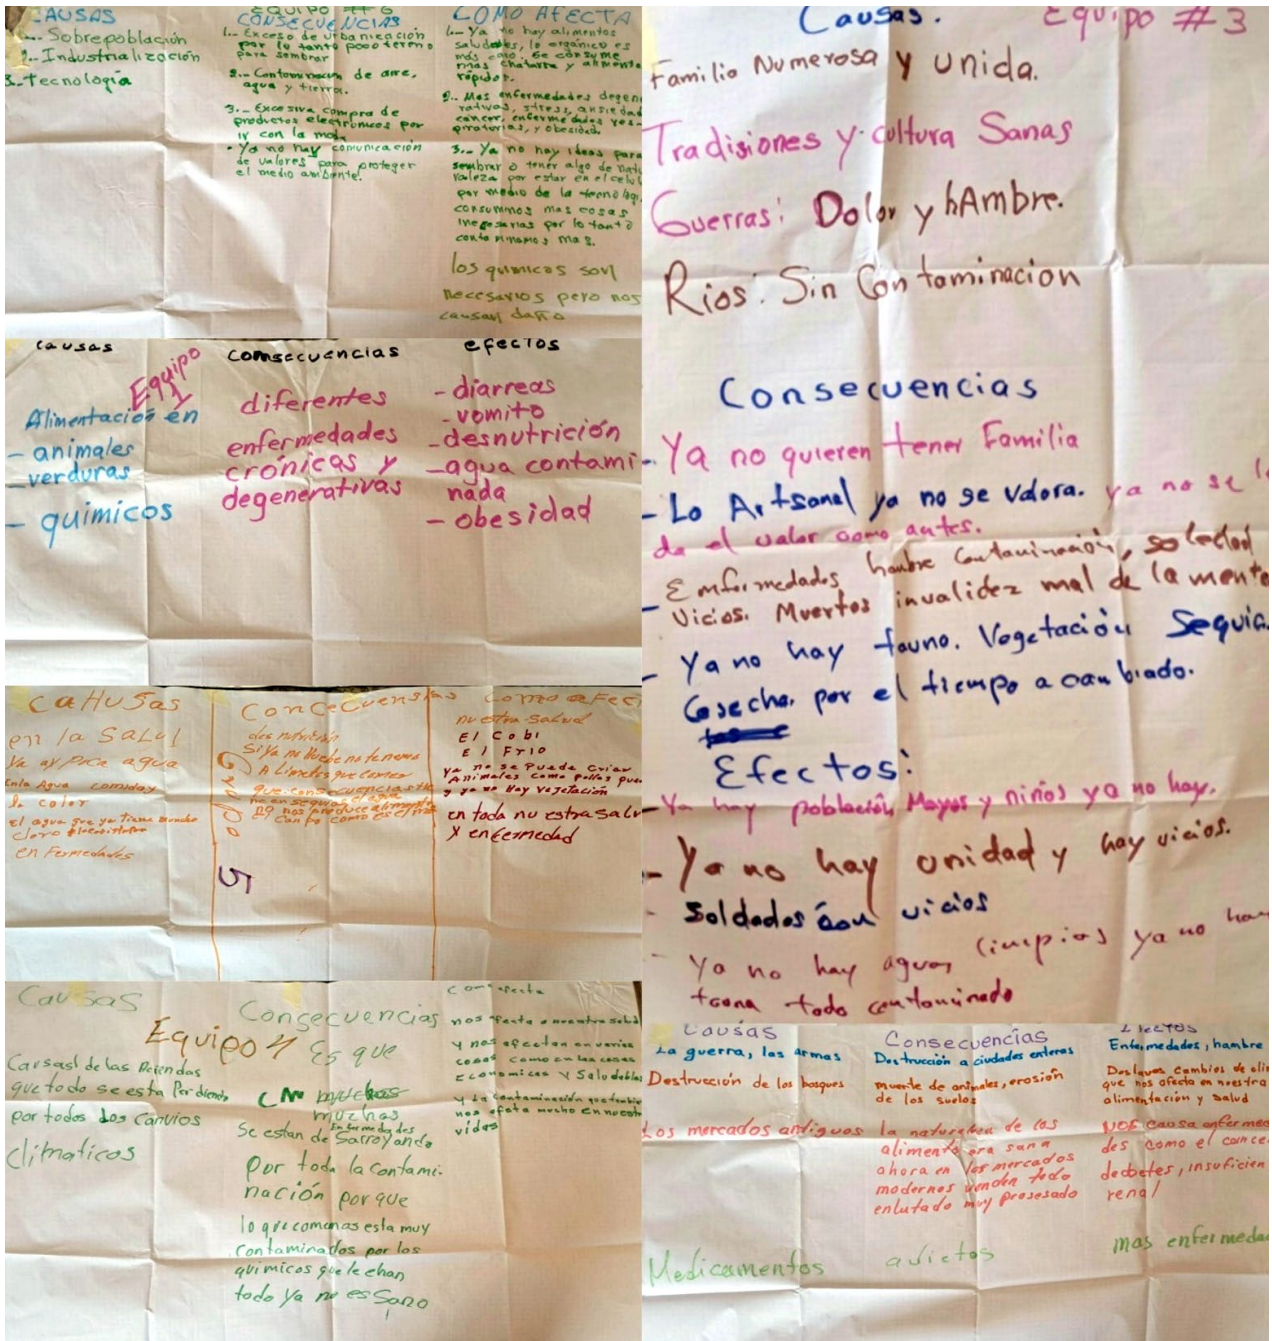 EQUIPO #6
CAUSAS
1.- Sobrepoblación
2.- Industrialización
3.- Tecnología
CONSECUENCIAS
1.- Exceso de urbanización
por lo tanto poco terreno
para sembrar
2.- Contaminación de aire,
agua y tierra.
3.- Excesiva compra de
productos electrónicos por
ir con la moda
- Ya no hay comunicación
de valores para proteger
el medio ambiente.
COMO AFECTA
1.- Ya no hay alimentos
saludables, lo orgánico es
más caro, se consume
mas chatarra y alimento
rápidos.
2.- Mas enfermedades degene
rativas, stress, ansiedad
cancer, enfermedades res-
piratorias, y obesidad
3.- Ya no hay ideas para
sembrar o tener algo de natu
raleza por estar en el celul
por medio de la tecnolog
consumimos mas cosas
inesesarias por lo tanto
contaminamos mas.
los quimicos son
necesarios pero nos
causan daño
Causas
Equipo
1
Alimentación en
- animales
- verduras
- quimicos
Comsecuencias
diferentes
enfermedades
crónicas y
degenerativas
efectos
- diarreas
- vomito
- desnutrición
- agua contami
nada
- obesidad
CaHusas
en la Salul
Ya ay poca agua
Enla Agua comiday
la color
El agua que ya tiene muncho
cloro
en Fermedades
Concecuensias
desnutrición
Si Ya no lluebe no tenemos
Alimetos que comer
5
Como afec
nuestra salud
El Cobi
El Frio
ya no se Puede Criar
Animales Como pollos pue
y ya no Hay Vejetación
en toda nu estra Salu
y enfermedad
Causas
Equipo 4
Causasl de las Priendas
que todo se esta Perdiendo
por todos los canvios
climaticos
Consecuencias
Es que
muchas
enfermedades
Se estan de Sarroyando
por toda la contami-
nación por que
lo que comemas esta muy
contaminados por los
quimicos que le echan
todo Ya no es Sano
Com afecta
nos afecta a nuestra salud
y nos afectan en varias
cosas como en las cosas
Economicas y Saludables
y la contaminación que tambien
nos afeta mucho en nuestra
vidas
Causas. Equipo #3
Familia Numerosa y unida.
Tradisiones y cultura Sanas
Guerras: Dolor y hAmbre.
Rios: Sin Contaminacion
Consecuencias
- Ya no quieren tener Familia
- Lo Artsanal ya no se valora. ya no se l
da el valor como antes.
- Emfermedades hambre Contaminación, soledad
Vicios. Muertos invalidez mal de la mente
- Ya no hay fauno. Vegetación Sequia.
Cosecha. por el tiempo a cambiado.
Efectos:
- Ya hay población Mayor y niños ya no hay.
- Ya no hay unidad y hay vicios.
- Soldados con vicios
- Ya no hay aguas limpias ya no hay
todo contaminado
Causas
La guerra, las armas
Destrucción de los bosques
Los mercados antiguos
Medicamentos
Consecuencias
Destrucción a ciudades enteras
muerte de animales, erosión
de los suelos
la naturaleza de los
alimento era sana
ahora en los mercados
modernos venden todo
enlatado muy prosesado
adictos
Efectos
Enfermedades, hambre
Des
que nos afecta en nuestra
alimentación y salud
nos causa enfermed
des como el cance
deabetes, insuficien
renal
mas enfermeda